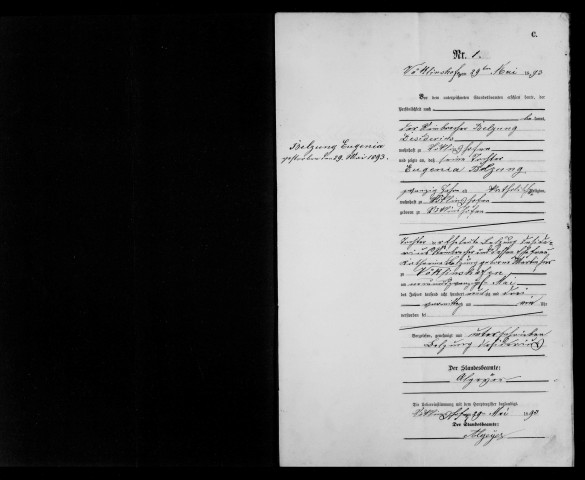 C.
Nr. 1.
am 29ten Mai 1893
Vor dem unterzeichneten Standesbeamten erschien heute, der
Persönlichkeit nach
be kannt,
der Belzung
Desiderius
wohnhaft zu
und zeigte an, daß seine Tochter
Eugenia Belzung
Belzung Eugenia
gestorben den 29. Mai 1893.
zwanzig Jahre alt, katholischer Religion,
wohnhaft zu
geboren zu
Tochter Belzung
und dessen Ehefrau
Katharina Belzung geborene
zu
am neunundzwanzigsten Mai
des Jahres tausend acht hundert neunzig und drei
vormittags um ein Uhr
verstorben sei
Vorgelesen, genehmigt und unterschrieben
Belzung Desiderius
Der Standesbeamte:
Algeyer
Die Uebereinstimmung mit dem Hauptregister beglaubigt.
am 29. Mai 1893
Der Standesbeamte:
Algeyer